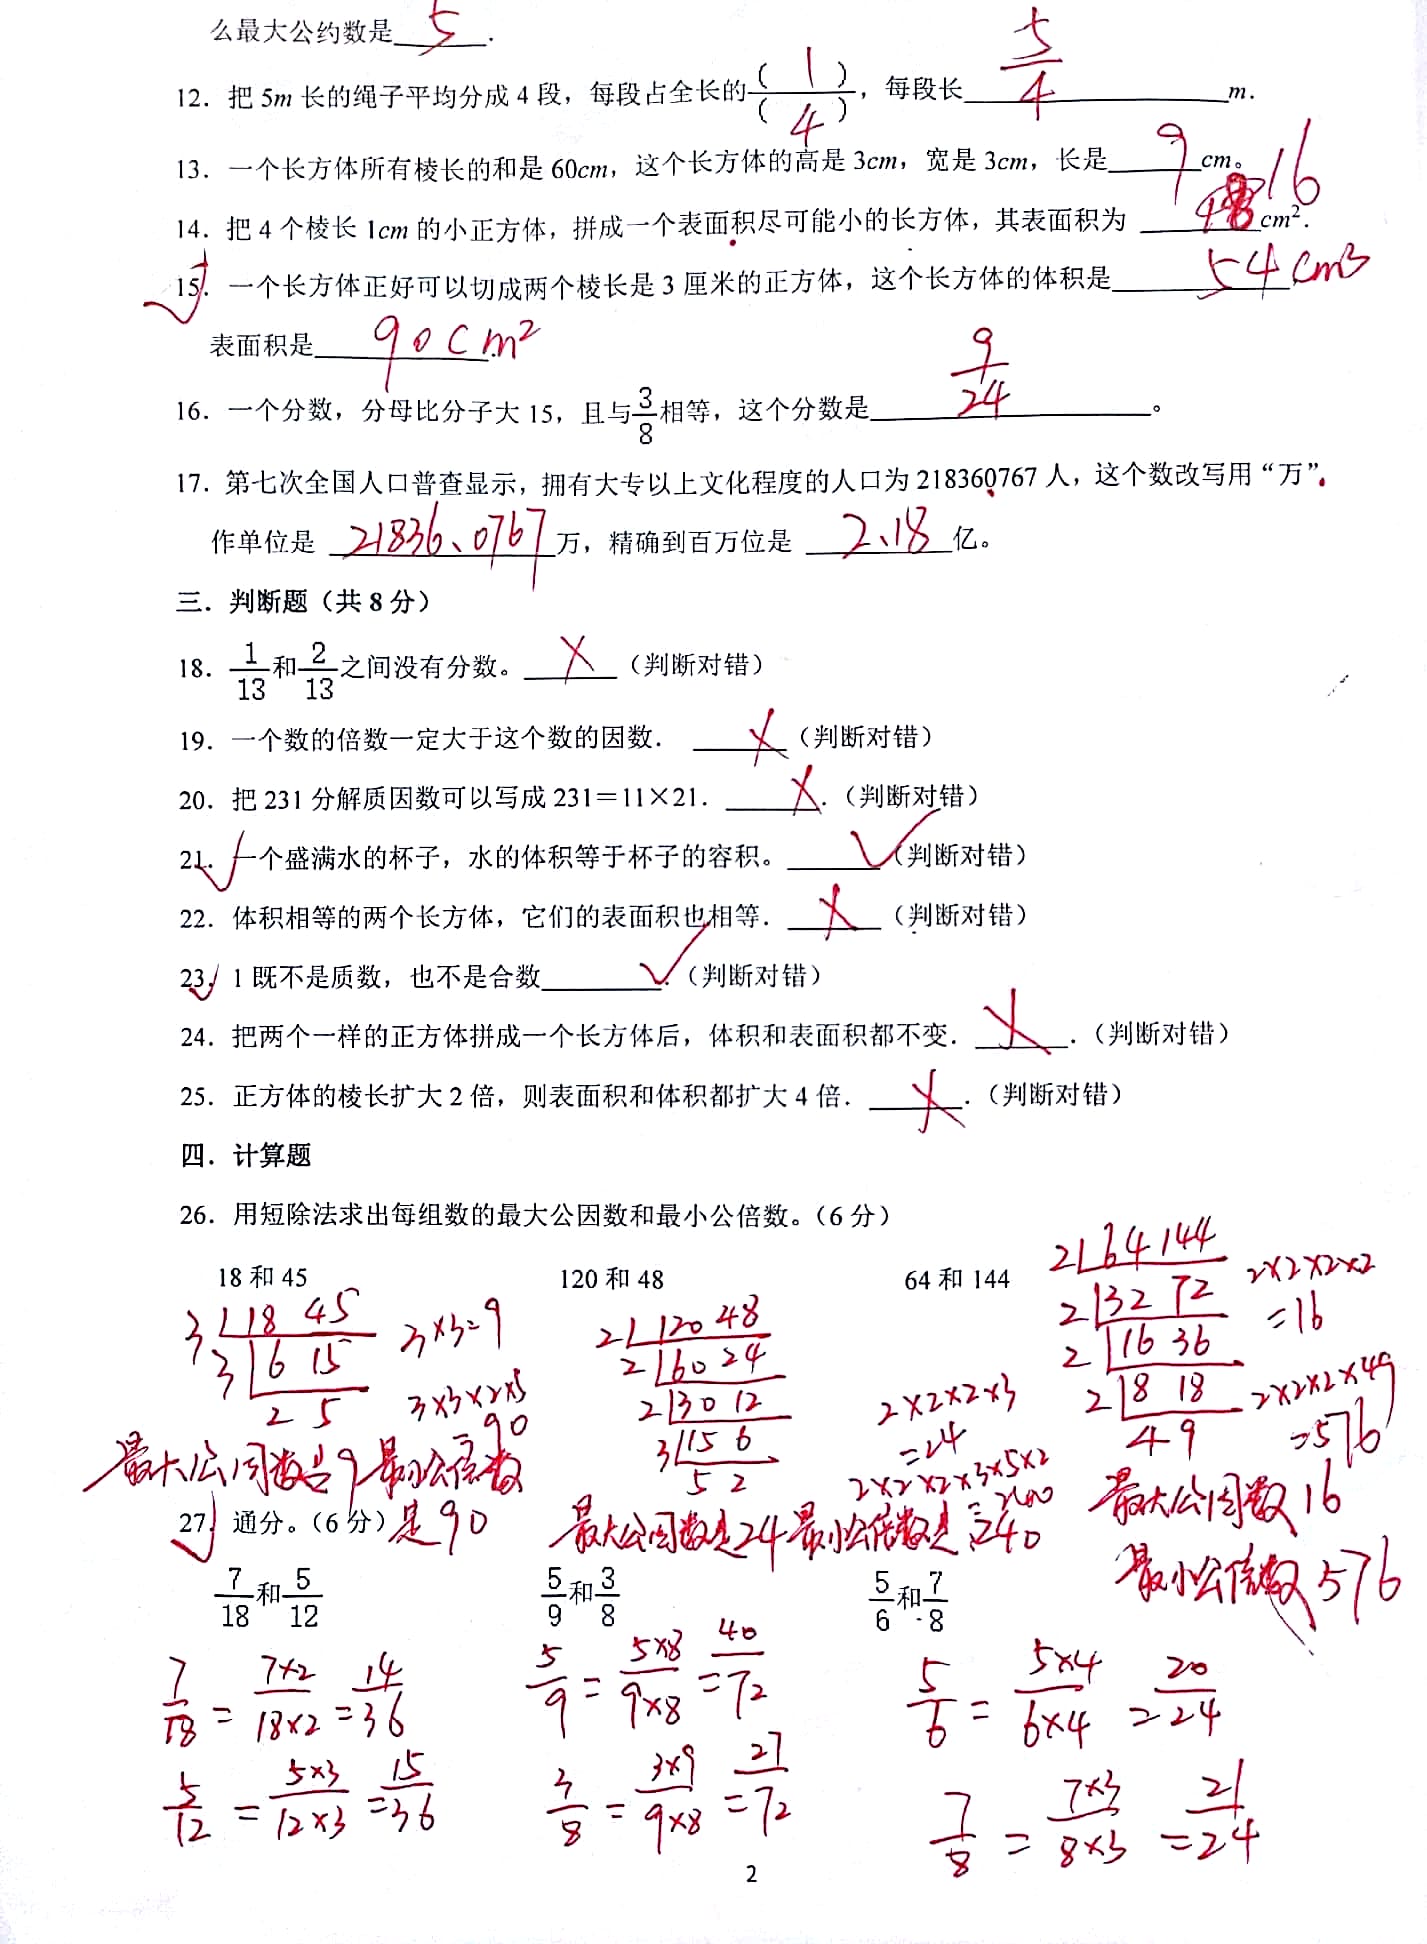 么最大公约数是 5 .
12．把 5m 长的绳子平均分成 4 段，每段占全长的 (1)/(4)，每段长 5/4 m．
13．一个长方体所有棱长的和是 60cm，这个长方体的高是 3cm，宽是 3cm，长是 9 cm。
14．把 4 个棱长 1cm 的小正方体，拼成一个表面积尽可能小的长方体，其表面积为 16 cm²．
15．一个长方体正好可以切成两个棱长是 3 厘米的正方体，这个长方体的体积是 54cm³
表面积是 90cm²
16．一个分数，分母比分子大 15，且与 3/8 相等，这个分数是 9/24 。
17．第七次全国人口普查显示，拥有大专以上文化程度的人口为 218360767 人，这个数改写用“万”
作单位是 21836、0767 万，精确到百万位是 2、18 亿。
三．判断题（共 8 分）
18．1/13 和 2/13 之间没有分数。 ×（判断对错）
19．一个数的倍数一定大于这个数的因数． ×（判断对错）
20．把 231 分解质因数可以写成 231＝11×21． ×．（判断对错）
21．一个盛满水的杯子，水的体积等于杯子的容积。 √（判断对错）
22．体积相等的两个长方体，它们的表面积也相等． ×（判断对错）
23．1 既不是质数，也不是合数 √．（判断对错）
24．把两个一样的正方体拼成一个长方体后，体积和表面积都不变． ×．（判断对错）
25．正方体的棱长扩大 2 倍，则表面积和体积都扩大 4 倍． ×．（判断对错）
四．计算题
26．用短除法求出每组数的最大公因数和最小公倍数。（6 分）
18 和 45 120 和 48 64 和 144
3 18 45
3 6 15
2 5
3×3=9
3×3×2×5
=90
最大公因数是9 最小公倍数
是90
2 120 48
2 60 24
2 30 12
3 15 6
5 2
2×2×2×3
=24
2×2×2×3×5×2
=240
最大公因数是24 最小公倍数是240
2 64 144
2 32 72
2 16 36
2 8 18
4 9
2×2×2×2
=16
2×2×2×49
=576
最大公因数16
最小公倍数576
27．通分。（6 分）
7/18 和 5/12 5/9 和 3/8 5/6 和 7/8
7/18 = 7×2/18×2 = 14/36 5/9 = 5×8/9×8 = 40/72 5/6 = 5×4/6×4 = 20/24
5/12 = 5×3/12×3 = 15/36 3/8 = 3×9/9×8 = 27/72 7/8 = 7×3/8×3 = 21/24
2